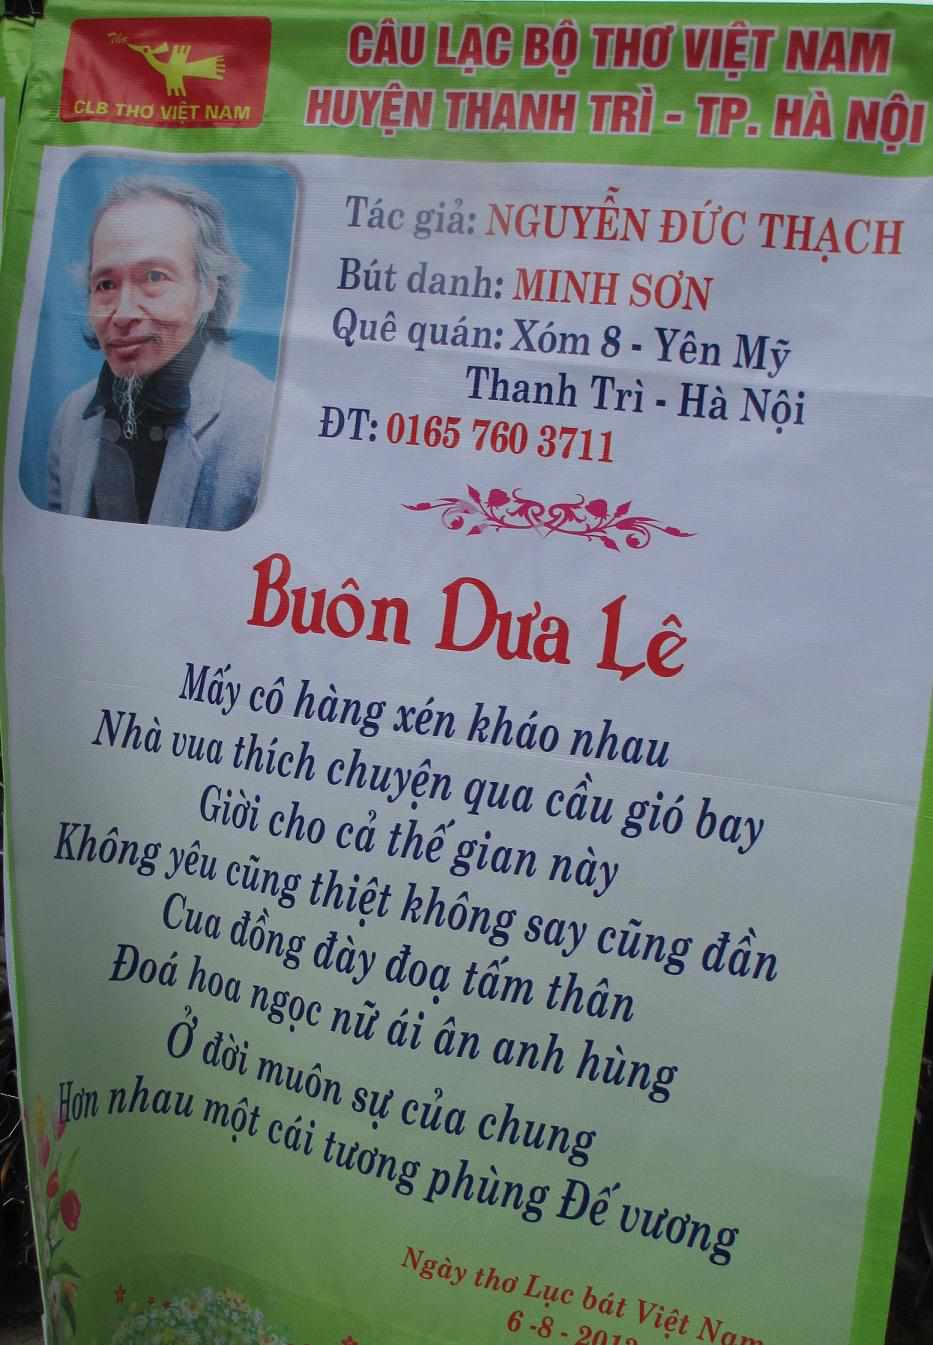 Thơ
CLB THƠ VIỆT NAM
CÂU LẠC BỘ THƠ VIỆT NAM
HUYỆN THANH TRÌ - TP. HÀ NỘI
Tác giả: NGUYỄN ĐỨC THẠCH
Bút danh: MINH SƠN
Quê quán: Xóm 8 - Yên Mỹ
Thanh Trì - Hà Nội
ĐT: 0165 760 3711
Buôn Dưa Lê
Mấy cô hàng xén kháo nhau
Nhà vua thích chuyện qua cầu gió bay
Giời cho cả thế gian này
Không yêu cũng thiệt không say cũng đần
Cua đồng đày đoạ tấm thân
Đoá hoa ngọc nữ ái ân anh hùng
Ở đời muôn sự của chung
Hơn nhau một cái tương phùng Đế vương
Ngày thơ Lục bát Việt Nam
6 -8 -